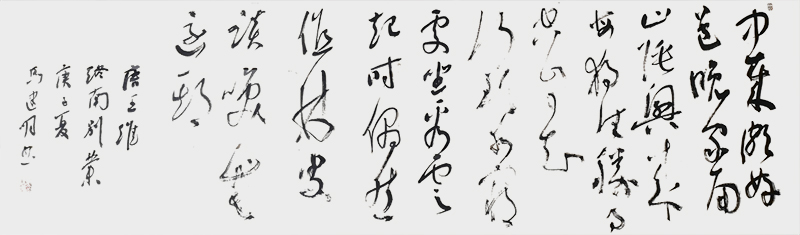 中歲頗好
道晚家南
山陲興来
每獨往勝事
空自知
行到水窮
處坐看雲
起时偶然
值林叟
談笑無
還期
唐王維
終南别業
庚子夏